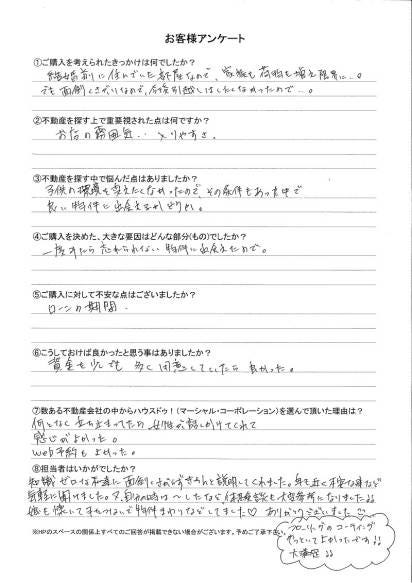 お客様アンケート
①ご購入を考えられたきっかけは何でしたか?
結婚前に住んでいた部屋なので、家族も荷物も増え限界に…。
でも面倒くさがりなので、今後引越しはしたくなかったので…。
②不動産を探す上で重要視された点は何ですか?
お店の雰囲気…入りやすさ。
③不動産を探す中で悩んだ点はありましたか?
子供の環境を変えたくなかったので、その条件もあった中で
良い物件に出会えるかどうか。
④ご購入を決めた、大きな要因はどんな部分(もの)でしたか?
一度みたら忘れられない物件に出会えたので。
⑤ご購入に対して不安な点はございましたか?
ローンの期間.
⑥こうしておけば良かったと思う事はありましたか?
資金を少しでも多く用意していたら良かった。
⑦数ある不動産会社の中からハウスドゥ!(マーシャル・コーポレーション)を選んで頂いた理由は?
何となく立ち止まってたら女性が話しかけてくれて
感じがよかった。
web予約もよかった。
⑧担当者はいかがでしたか?
知識ゼロな私達に面倒くさがらずきちんと説明してくれました。年も近く不安な事など
気軽に聞けました。又、自分の時は〜したなど体験談も大変参考になりました
娘も懐いてすごくで物件まわりなどしてました♡ ありがとうございました
フローリングのコーティング
やっといてよかったです
大満足
※HPのスペースの関係上すべてのご回答が掲載できない場合がございます。予めご了承下さい。